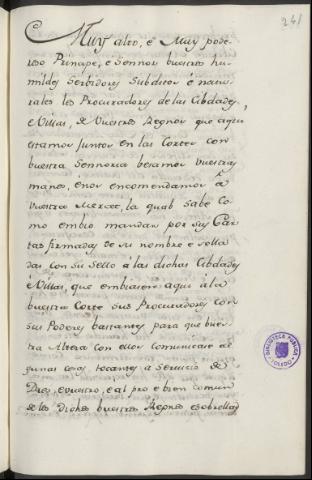 241
Muy alto, é Muy pode-
roso Prinçipe, é Sennor buestros hu-
mildes Serbidores Subditos é natu-
rales los Procuradores de las Cibdades,
é Villas, de Vuestros Regnos que aqui
estamos juntos en las Cortes con
buestra Sennoria besamos Vuestras
manos, énos encomendamos á
Vuestra Merçet, la qual sabe Co-
mo embio mandar por sus Car-
tas firmadas de su nombre e sella-
das con su Sello á las dichas Cibdades
é Villas, que embiasen aqui á la
buestra Corte sus Procuradores con
sus Poderes bastantes para que bues-
tra Alteza con ellos Comunicase al-
gunas cosas tocantes a Serviçio de
Dios, é vuestro, é al pro é bien comun
de los Dichos buestros Regnos é sobrellas
BIBLIOTECA PUBLICA
TOLEDO